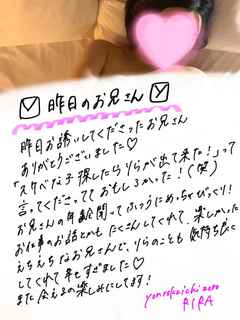 昨日のお兄さん
昨日お誘いしてくださったお兄さん
ありがとうございました♡
「スケベな子探したらりらが出て来た!」って
言ってくださっておもしろかった!(笑)
お兄さんの年齢聞いてふつうにめっちゃびっくり!
お仕事のお話とかもたくさんしてくれて、楽しかった
えちえちなお兄さんで、りらのことも気持ちよく
してくれて幸せすぎました♡
また会えるの楽しみにしてます!
RIRA